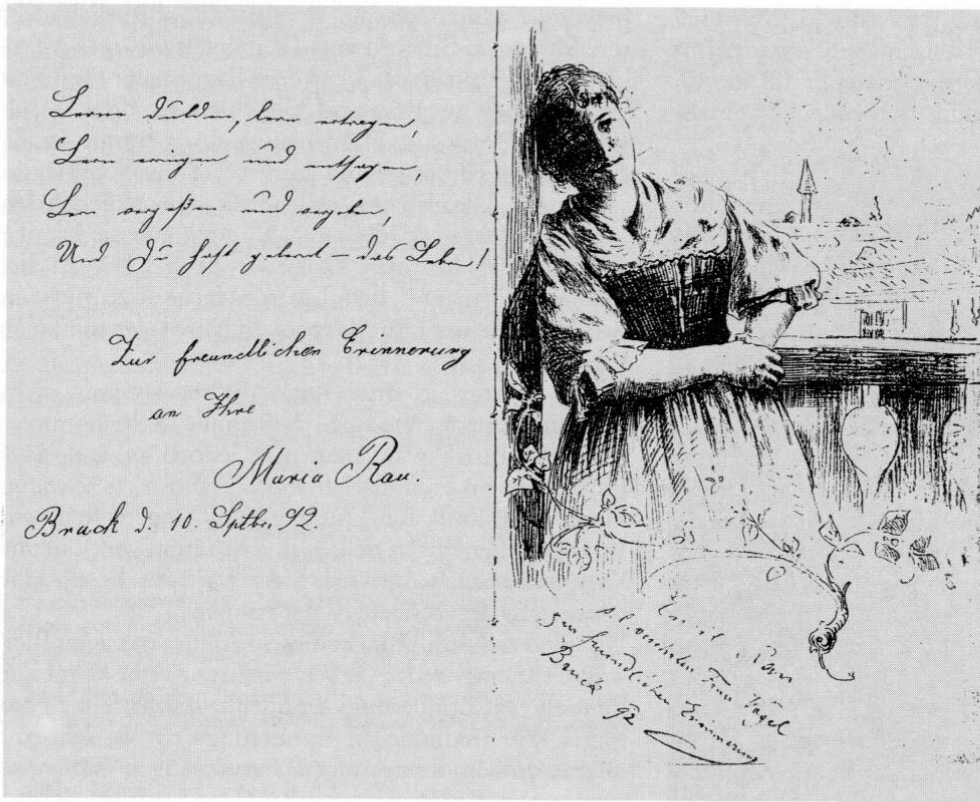 Lerne dulden, lern ertragen,
Lern ringen und entsagen,
Lern vergessen und vergeben,
Und Du hast gelernt – das Leben!
Zur freundlichen Erinnerung
an Ihre
Maria Rau.
Bruck d. 10. Sptbr. 92.
Emil Rau
s. l. verehrten Frau Vogel
zur freundlichen Erinnerung
Bruck
92